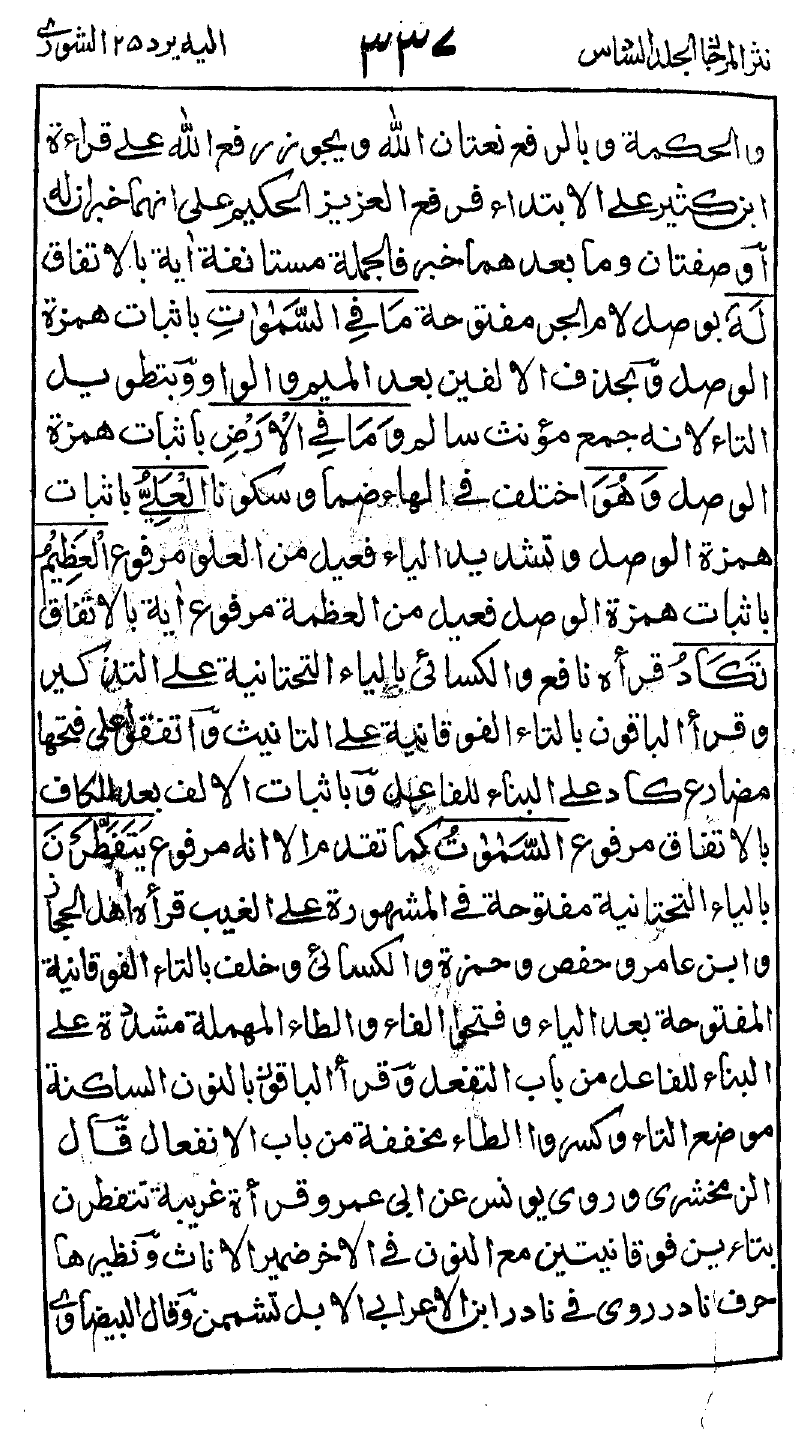 نثر المرجان الجلد السادس ٣٣٧ اليه يرد ٢٥ الشورى
والحكمة وبالرفع نعتان الله ويجوز رفع الله على قراءة
ابن كثير على الابتداء فرفع العزيز الحكيم على انهما خبران له
أو صفتان وما بعدهما خبر فالجملة مستانفة أية بالاتفاق
لَهُ بوصل لام الجر مفتوحة مَا فِي السَّمٰوٰتِ باثبات همزة
الوصل وبحذف الالفين بعد الميم والواو وبتطويل
التاء لانه جمع مؤنث سالم وَمَا فِي الْاَرْضِ باثبات همزة
الوصل وَهُوَ اختلف في الهاء ضما وسكونا الْعَلِيُّ باثبات
همزة الوصل وتشديد الياء فعيل من العلو مرفوع الْعَظِيْمُ
باثبات همزة الوصل فعيل من العظمة مرفوع أية بالاتفاق
تَكَادُ قرأه نافع والكسائي بالياء التحتانية على التذكير
وقرأ الباقون بالتاء الفوقانية على التانيث واتفقوا على فتحها
مضارع كاد على البناء للفاعل وباثبات الالف بعد الكاف
بالاتفاق مرفوع السَّمٰوٰتُ كما تقدم الا انه مرفوع يَتَفَطَّرْنَ
بالياء التحتانية مفتوحة في المشهورة على الغيب قرأه اهل الحجاز
وابن عامر وحفص وحمزة والكسائي وخلف بالتاء الفوقانية
المفتوحة بعد الياء وفتحي الفاء والطاء المهملة مشددة على
البناء للفاعل من باب التفعل وقرأ الباقون بالنون الساكنة
موضع التاء وكسروا الطاء مخففة من باب الانفعال قال
الزمخشري وروى يونس عن ابي عمرو قرأة غريبة تتفطرن
بتاءين فوقانيتين مع النون في الاخر ضمير الاناث ونظيرها
حرف نادر روى في نادر ابن الاعرابي الابل تشممن وقال البيضاوي